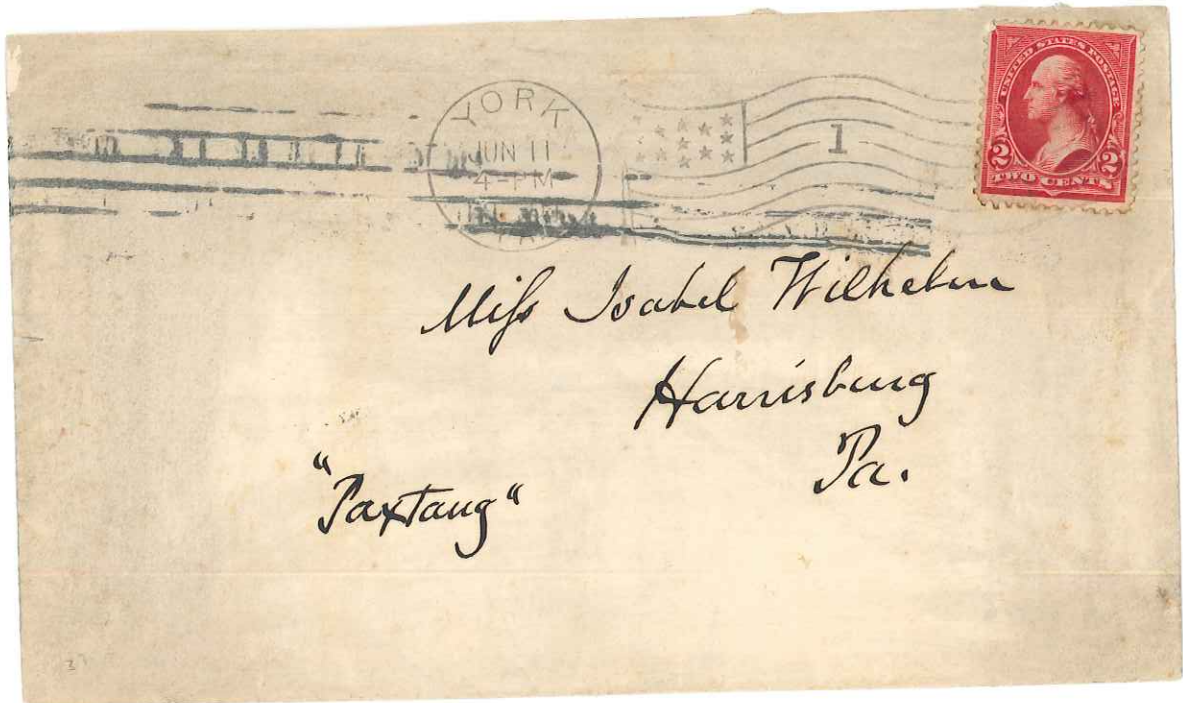 YORK
JUN 11
4-PM
PA.
1
UNITED STATES POSTAGE
2 2
TWO CENTS
Miss Isabel Wilhelm
Harrisburg
Pa.
"Paxtang"